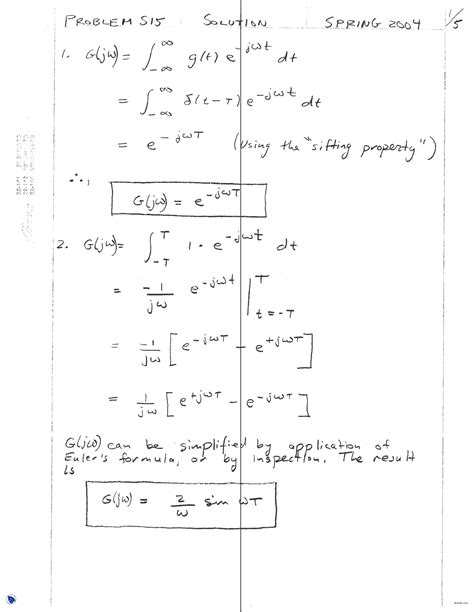 PROBLEM S15 SOLUTION SPRING 2004 1/5
1. G(jω) = ∫_{-∞}^{∞} g(t) e^{-jωt} dt
= ∫_{-∞}^{∞} δ(t-T) e^{-jωt} dt
= e^{-jωT} (Using the "sifting property")
∴,
G(jω) = e^{-jωT}
2. G(jω) = ∫_{-T}^{T} 1 · e^{-jωt} dt
= -1/jω e^{-jωt} |_{t=-T}^{T}
= -1/jω [ e^{-jωT} - e^{+jωT} ]
= 1/jω [ e^{+jωT} - e^{-jωT} ]
G(jω) can be simplified by application of
Euler's formula, or by inspection. The result
is
G(jω) = 2/ω sin ωT